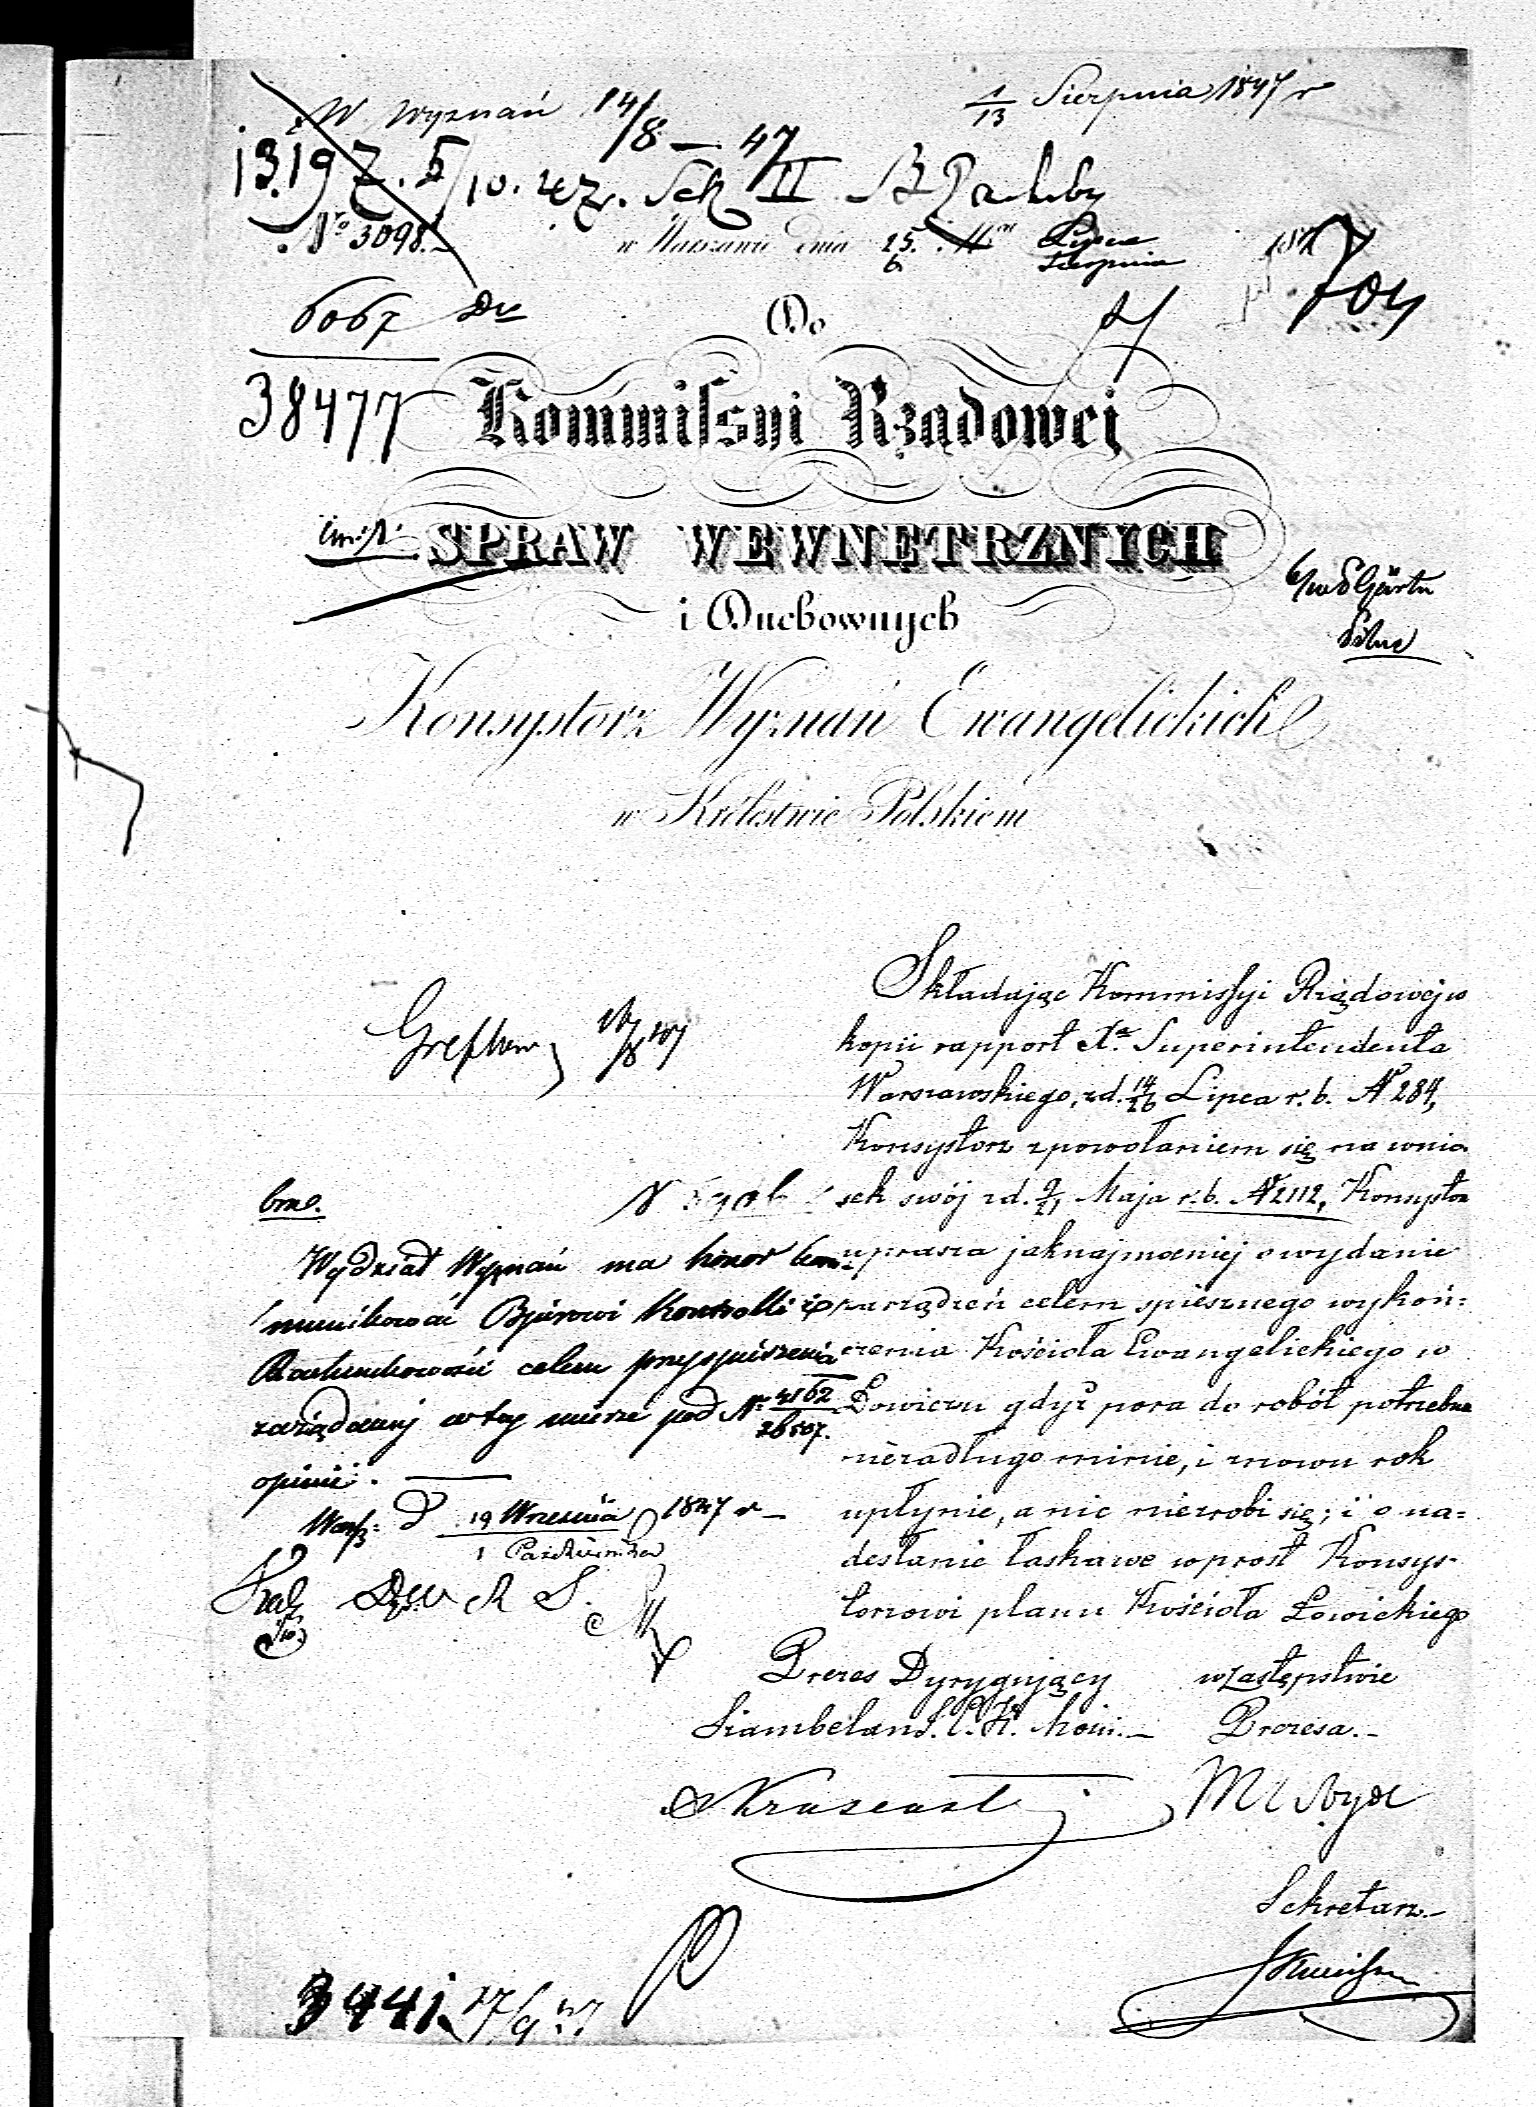 W. Wyznań 14/8 – 47
1/13 Sierpnia 1847 r
13.197. 5/10. 47. Sek II
No 3098.
w Warszawie dnia 25./6. Lipca / Sierpnia 1847
704
6067
Do
38477
Kommissyi Rządowej
SPRAW WEWNĘTRZNYCH
i Duchownych
Konsystorz Wyznań Ewangelickich
w Królestwie Polskiem
Składając Kommissyi Rządowej w
kopii rapport Xa Superintendenta
Warszawskiego, z d. 14/26 Lipca r. b. N 284,
Konsystorz z powołaniem się na wnio
sek swój z d. 9/21 Maja r. b. N 2112, Konsystorz
uprasza jaknajmocniej o wydanie
zarządzeń celem spiesznego wykoń:
czenia Kościoła Ewangelickiego w
Łowiczu gdyż pora do robót potrzebna
niezadługo minie, i znowu rok
upłynie, a nic niezrobi się; i o na=
desłanie łaskawe wprost Konsys-
torzowi planu Kościoła Łowickiego
Prezes Dyrygujący
Szambelan J. C. K. Mości.–
w Zastępstwie
Prezesa.–
Sekretarz.–
brw.
Wydział Wyznań ma honor kom-
munikować Bjurowi Kontrolli i
Rachunkowości celem przyspieszenia
zażądanej w tej mierze pod No 4162/26507.
opinii. –
Warsz: D 19 Września / 1 Października 1847 r –
3441. 27/9 47